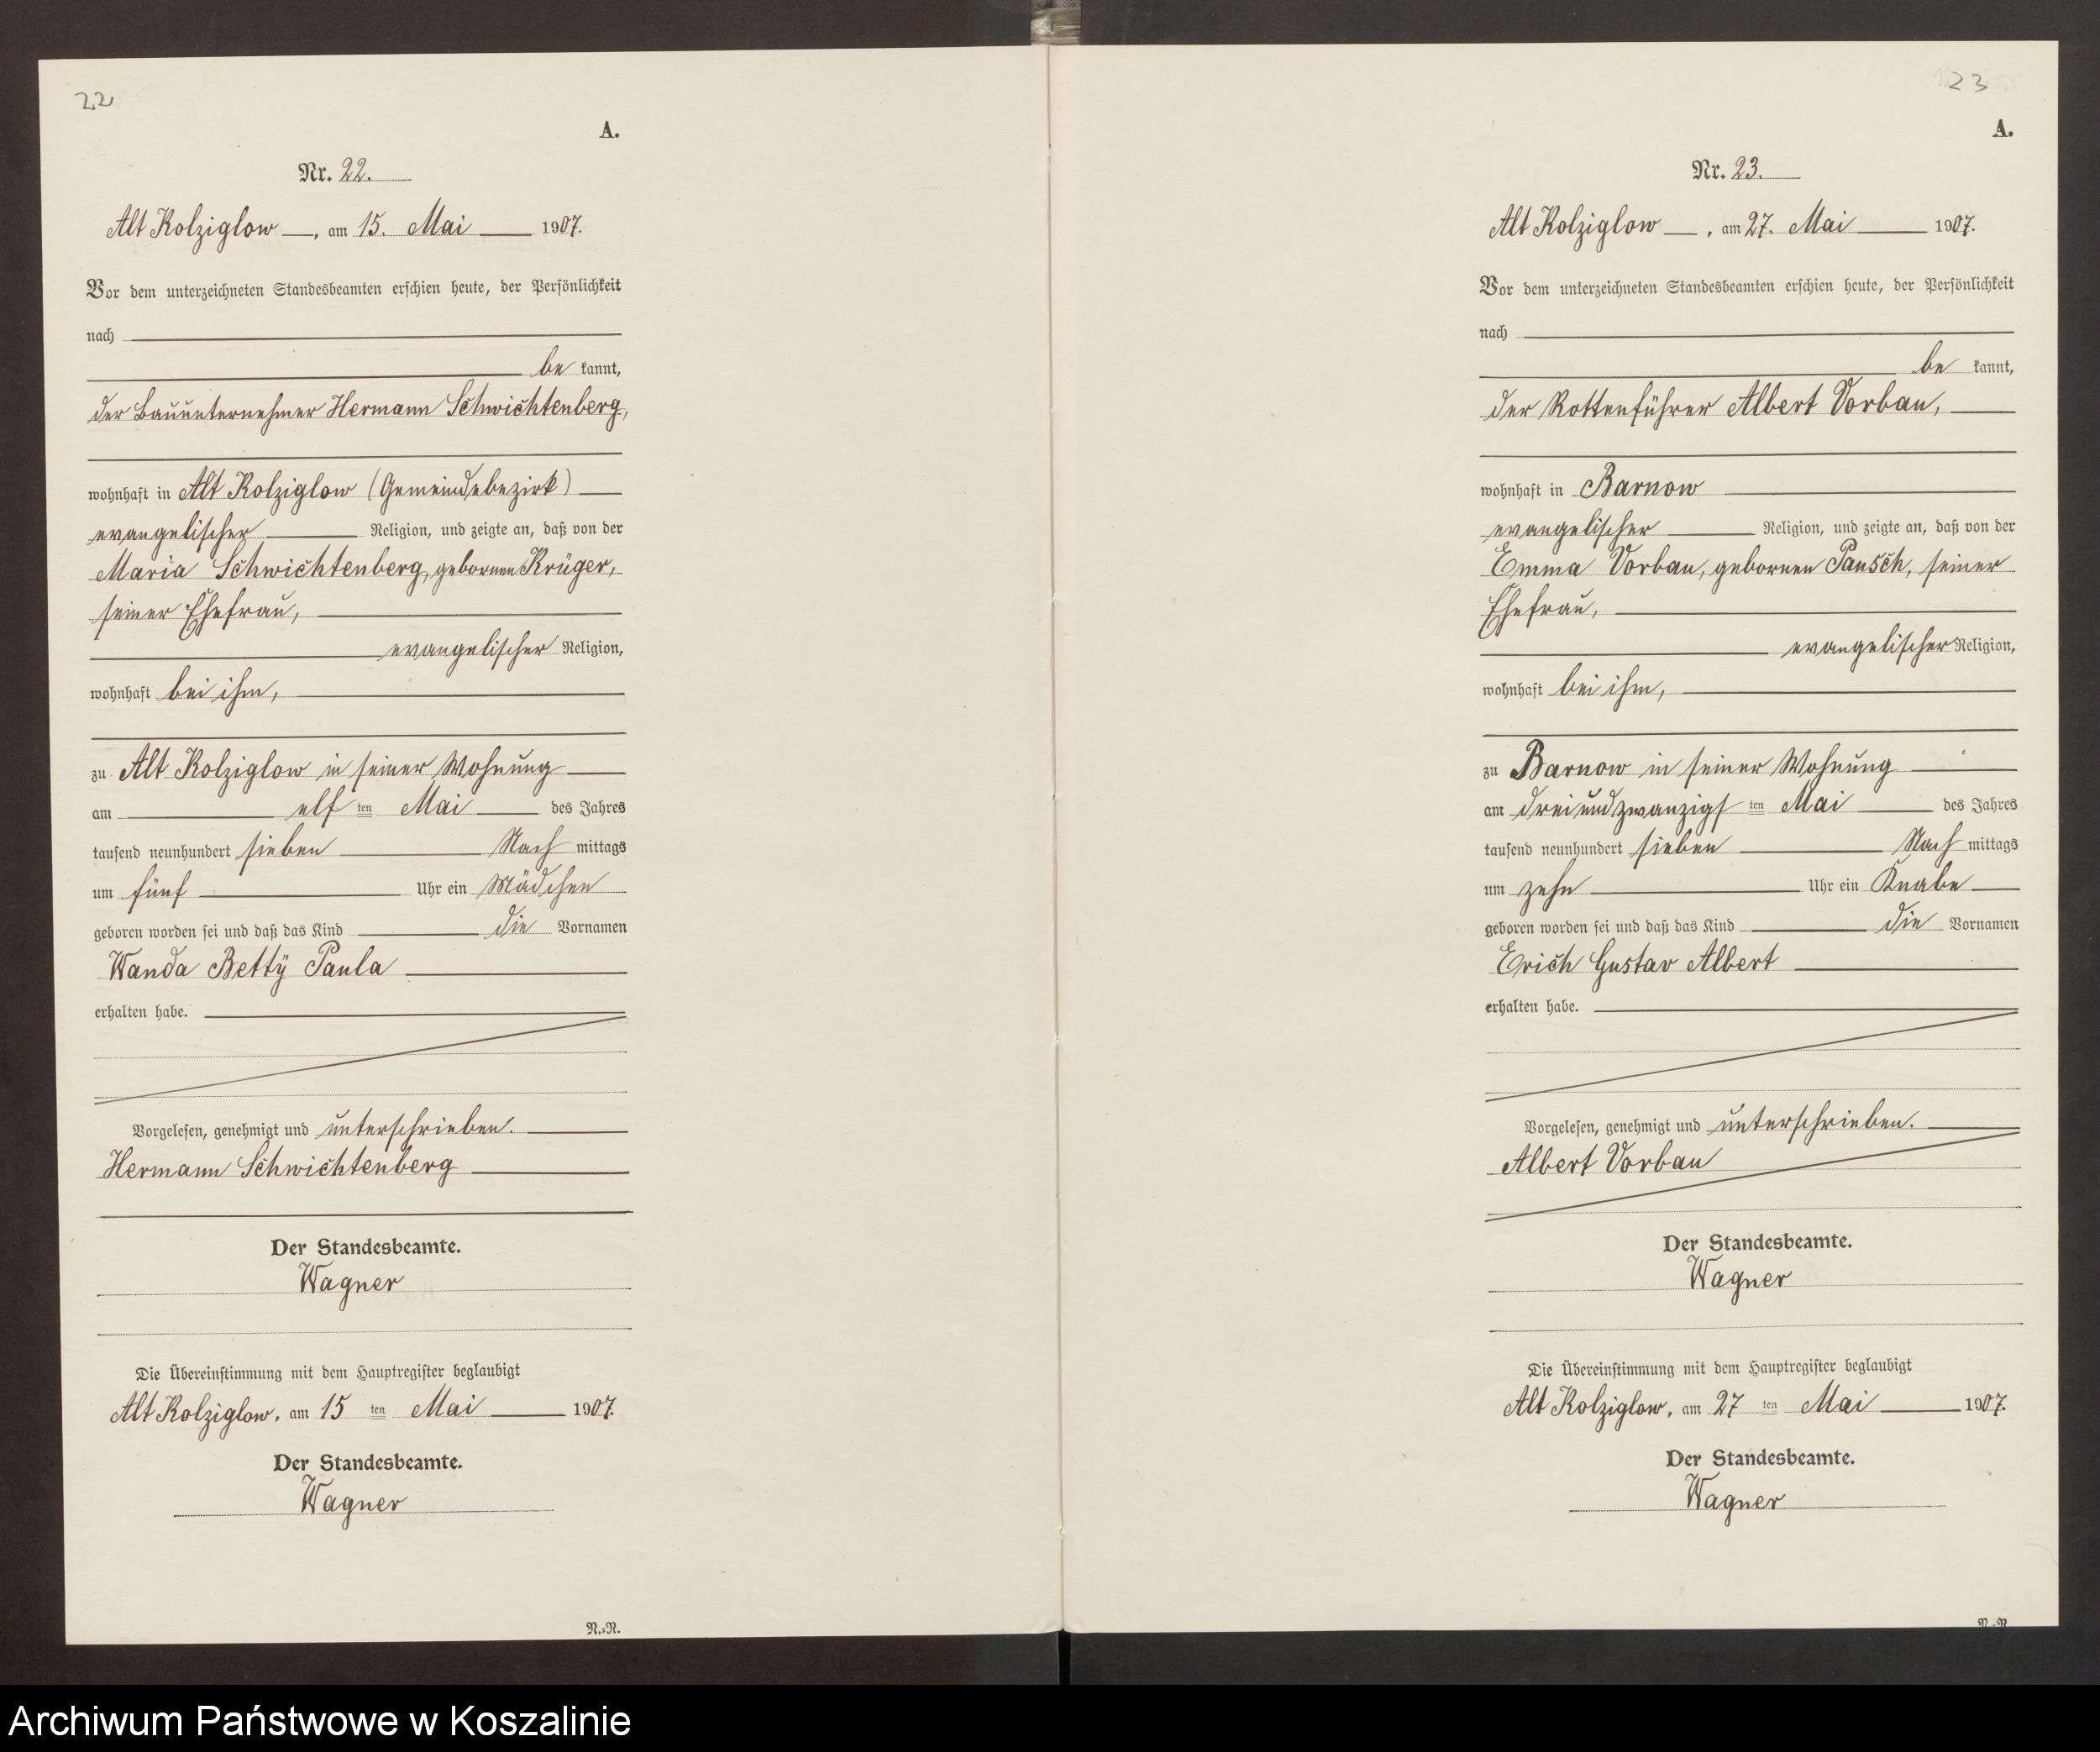 22
A.
Nr. 22.
Alt Kolziglow, am 15. Mai 1907.
Vor dem unterzeichneten Standesbeamten erschien heute, der Persönlichkeit
nach
be kannt,
der Bauunternehmer Hermann Schwichtenberg,
wohnhaft in Alt Kolziglow (Gemeindebezirk)
evangelischer Religion, und zeigte an, daß von der
Maria Schwichtenberg, gebornen Krüger,
seiner Ehefrau,
evangelischer Religion,
wohnhaft bei ihm,
zu Alt Kolziglow in seiner Wohnung
am elf ten Mai des Jahres
tausend neunhundert sieben Nach mittags
um fünf Uhr ein Mädchen
geboren worden sei und daß das Kind die Vornamen
Wanda Betty Paula
erhalten habe.
Vorgelesen, genehmigt und unterschrieben.
Hermann Schwichtenberg
Der Standesbeamte.
Wagner
Die Übereinstimmung mit dem Hauptregister beglaubigt
Alt Kolziglow, am 15 ten Mai 1907.
Der Standesbeamte.
Wagner
N.-R.
23
A.
Nr. 23.
Alt Kolziglow, am 27. Mai 1907.
Vor dem unterzeichneten Standesbeamten erschien heute, der Persönlichkeit
nach
be kannt,
der Rottenführer Albert Vorbau,
wohnhaft in Barnow
evangelischer Religion, und zeigte an, daß von der
Emma Vorbau, gebornen Pausch, seiner
Ehefrau,
evangelischer Religion,
wohnhaft bei ihm,
zu Barnow in seiner Wohnung
am dreiundzwanzigs ten Mai des Jahres
tausend neunhundert sieben Nach mittags
um zehn Uhr ein Knabe
geboren worden sei und daß das Kind die Vornamen
Erich Gustav Albert
erhalten habe.
Vorgelesen, genehmigt und unterschrieben.
Albert Vorbau
Der Standesbeamte.
Wagner
Die Übereinstimmung mit dem Hauptregister beglaubigt
Alt Kolziglow, am 27 ten Mai 1907.
Der Standesbeamte.
Wagner
N.-R.
Archiwum Państwowe w Koszalinie